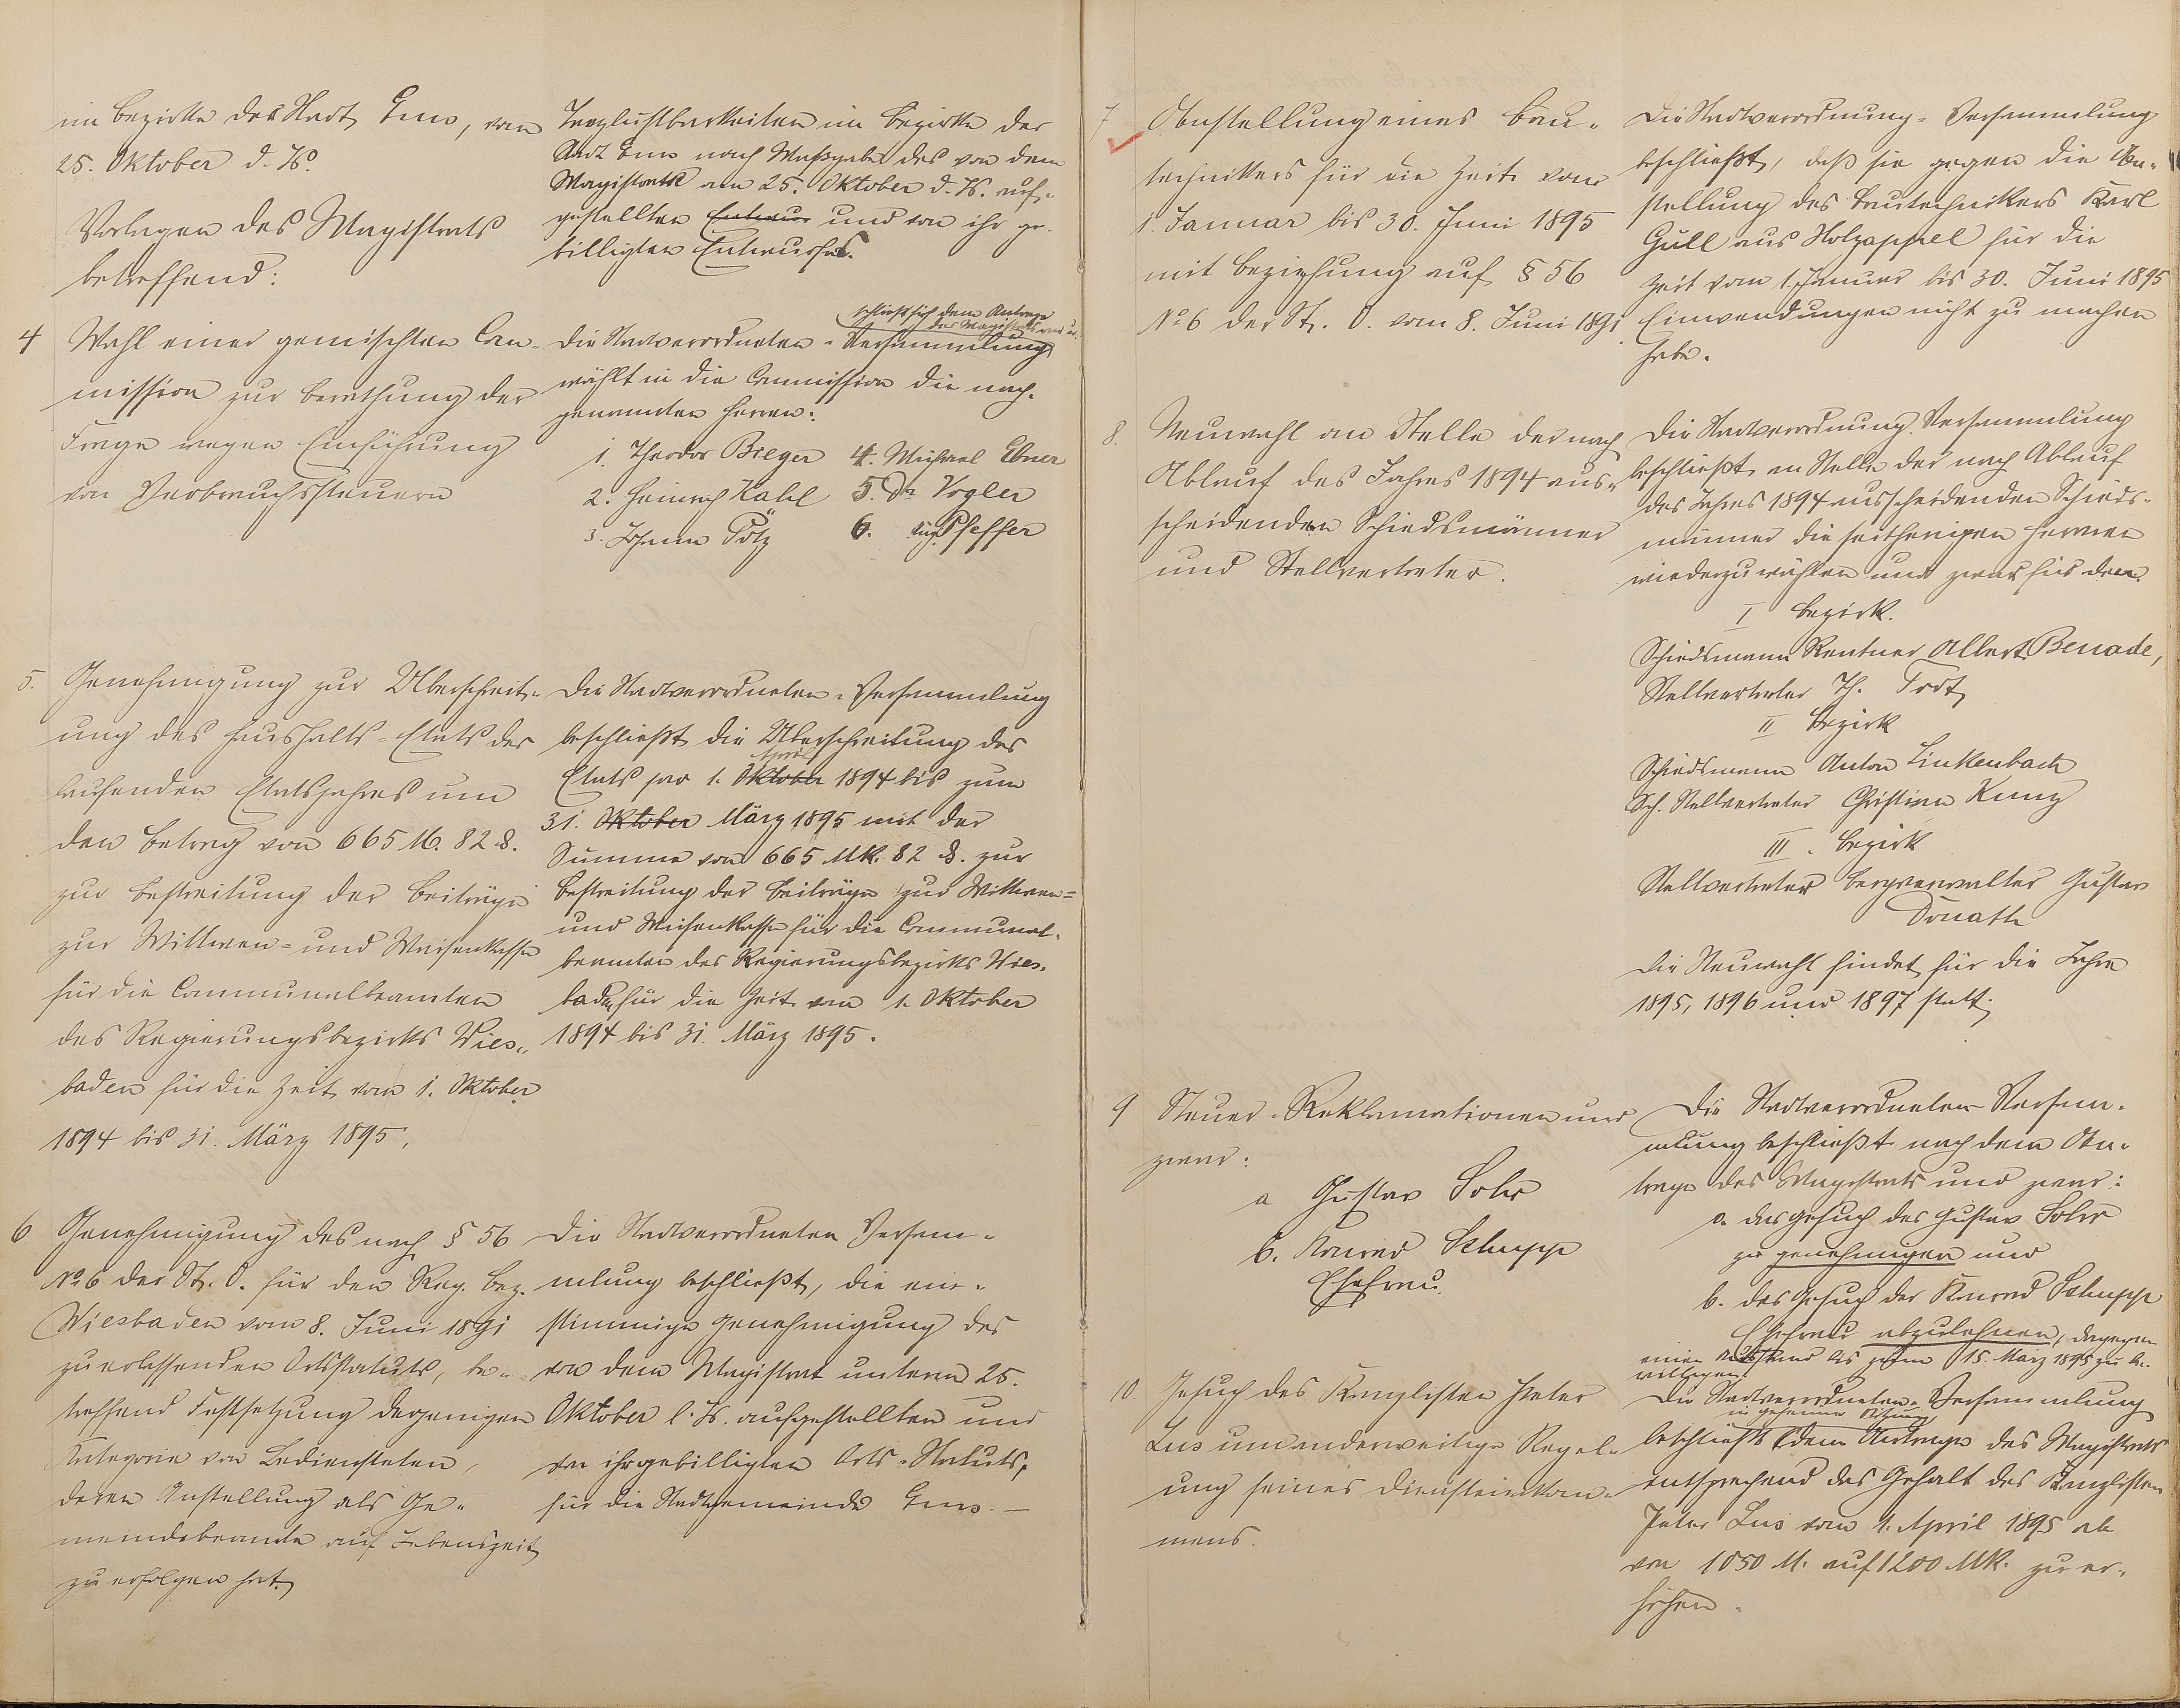 im Bezirke der Stadt Ems, vom
25. Oktober d. Js.
Vorlagen des Magistrats
betreffend:
4 Wahl einer gemischten Com-
mission zur Berathung der
Frage wegen Einführung
von Verbrauchssteuern
5. Genehmigung zur Überschreit-
ung des Haushalts-Etats des
laufenden Etatsjahres um
den Betrag von 665 M. 82 ₰.
zur Bestreitung der Beiträge
zur Wittwen- und Waisenkasse
für die Communalbeamten
des Regierungsbezirks Wies-
baden für die Zeit vom 1. Oktober
1894 bis 31. März 1895.
6 Genehmigung des nach § 56
No 6 der St. O. für den Reg. Bez.
Wiesbaden vom 8. Juni 1891
zu erlassenden Ortsstatuts, be-
treffend Festsetzung derjenigen
Kategorie von Bediensteten,
deren Anstellung als Ge-
meindebeamte auf Lebenszeit
zu erfolgen hat.
Tanzlustbarkeiten im Bezirke der
Stadt Ems nach Maßgabe des von dem
Magistrate am 25. Oktober d. Js. auf-
gestellten Entwur und von ihr ge-
billigten Entwurfes.
schließt sich dem Antrage
des Magistrats an u.
Die Stadtverordneten-Versammlung
wählt in die Commission die nach-
genannten Herren:
1. Theodor Bieger 4. Michael Ebner
2. Heinrich Kahl 5. Dr Vogler
3. Johann Pötz 6. Aug. Pfeffer
Die Stadtverordneten-Versammlung
beschließt die Überschreitung des
April
Etats pro 1. Oktober 1894 bis zum
31. Oktober März 1895 mit der
Summe von 665 Mk. 82 ₰. zur
Bestreitung der Beiträge zur Wittwen-
und Waisenkasse für die Communal-
beamten des Regierungsbezirks Wies-
baden für die Zeit vom 1. Oktober
1894 bis 31. März 1895.
Die Stadtverordneten Versam-
mlung beschließt, die ein-
stimmige Genehmigung des
von dem Magistrat unterm 25.
Oktober l. Js. aufgestellten und
von ihr gebilligten Orts-Statuts,
für die Stadtgemeinde Ems. —
7 Anstellung eines Bau-
technikers für die Zeit vom
1. Januar bis 30. Juni 1895
mit Beziehung auf § 56
No 6 der St. O. vom 8. Juni 1891.
8. Neuwahl an Stelle der nach
Ablauf des Jahres 1894 aus-
scheidenden Schiedsmänner
und Stellvertreter.
9 Steuer-Reklamationen und
zwar:
a Gustav Sohr
b. Konrad Schupp
Ehefrau
10. Gesuch des Kanzlisten Peter
Lus um anderweitige Regel-
ung seines Diensteinkom-
mens.
Die Stadtverordnung-Versammlung
beschließt, daß sie gegen die An-
stellung des Bautechnikers Karl
Güll aus Holzappel für die
Zeit vom 1. Januar bis 30. Juni 1895
Einwendungen nicht zu machen
habe.
Die Stadtverordnung-Versammlung
beschließt an Stelle der nach Ablauf
des Jahres 1894 ausscheidenden Schieds-
männer die seitherigen Herren
wiederzuwählen und zwar für den
I Bezirk.
Schiedsmann Rentner Albert Benade,
Stellvertreter Th. Todt
II Bezirk
Schiedsmann Anton Linkenbach
Sch. Stellvertreter Christian Kunz
III. Bezirk
Stellvertreter Bergverwalter Gustav
Donath
Die Neuwahl findet für die Jahre
1895, 1896 und 1897 statt.
Die Stadtverordneten-Versam-
mlung beschließt nach dem An-
trage des Magistrats und zwar:
a. das Gesuch des Gustav Sohr
zu genehmigen und
b. das Gesuch der Konrad Schupp
Ehefrau abzulehnen, dagegen
einen Ausstand bis zum 15. März 1895 zu be-
willigen.
Die Stadtverordneten-Versammlung
in geheimer Sitzung
beschließt dem Antrage des Magistrats
entsprechend das Gehalt des Kanzlisten
Peter Lus vom 1. April 1895 ab
von 1050 M. auf 1200 Mk. zu er-
höhen.